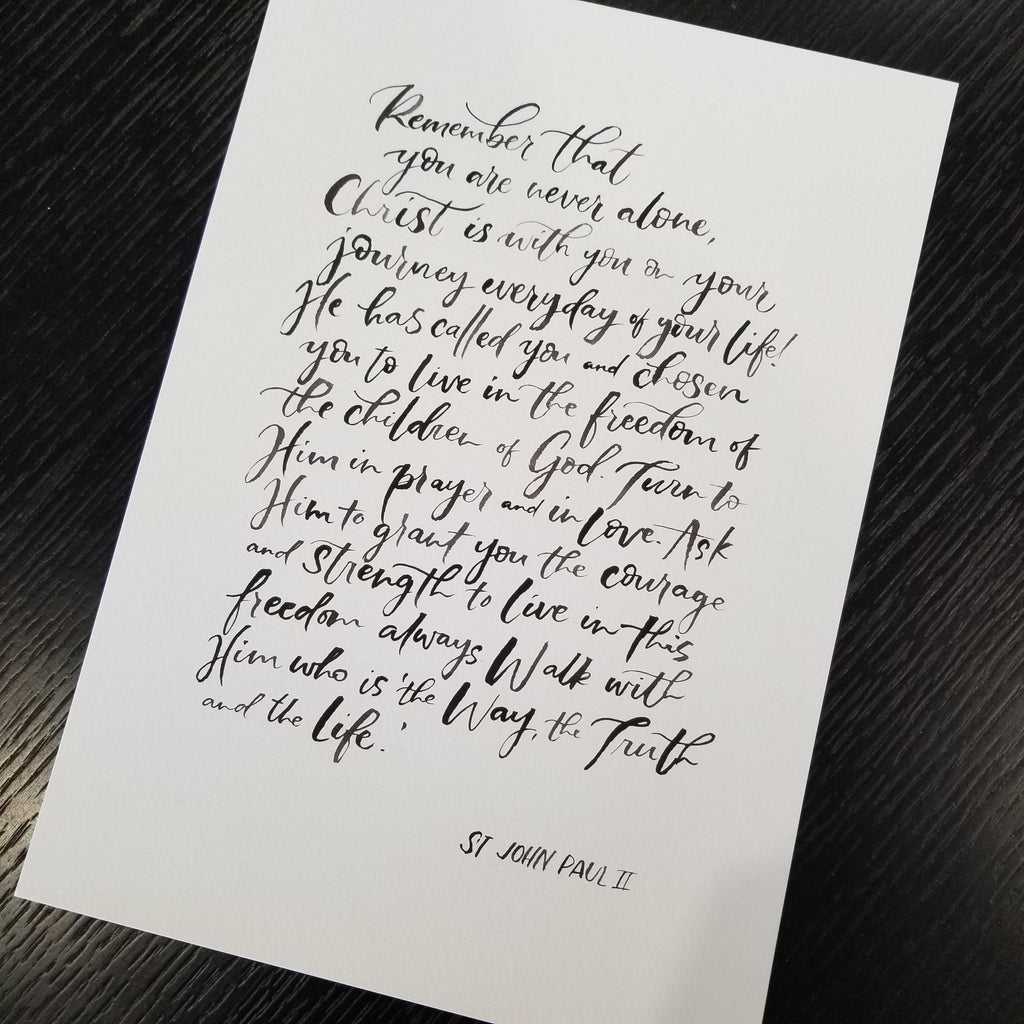 Remember that
you are never alone,
Christ is with you on your
journey everyday of your life!
He has called you and chosen
you to live in the freedom of
the children of God. Turn to
Him in prayer and in love. Ask
Him to grant you the courage
and strength to live in this
freedom always. Walk with
Him who is 'the Way, the Truth
and the Life.'
ST JOHN PAUL II